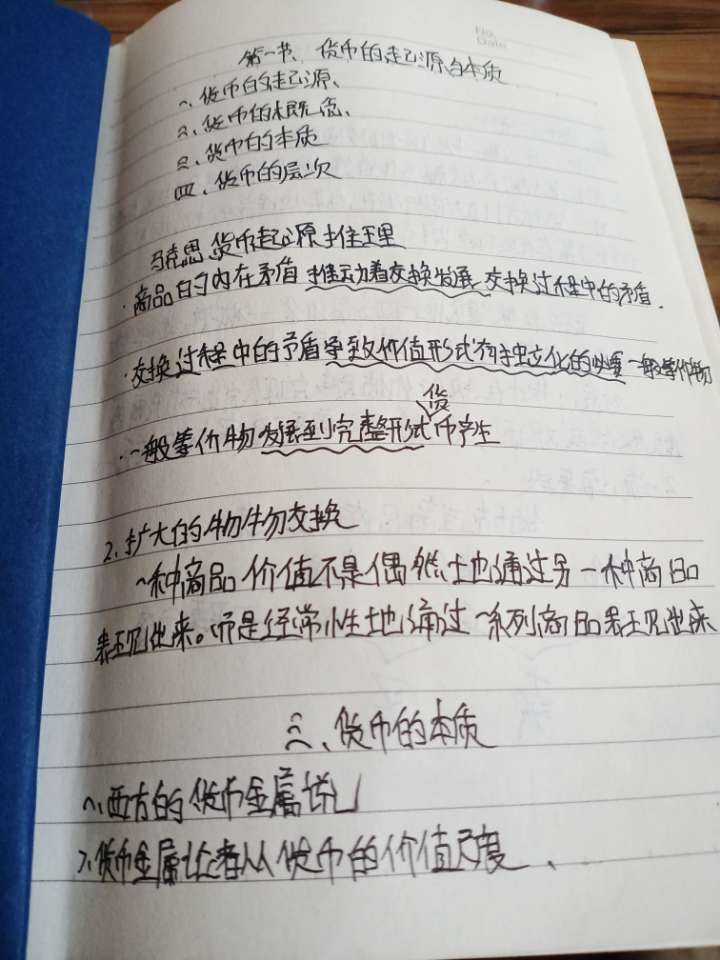 第一节、货币的起源与本质
一、货币的起源、
二、货币的概念、
三、货币的本质
四、货币的层次
马克思货币起源推理
·商品的内在矛盾推动着交换发展 交换过程中的矛盾.
·交换过程中的矛盾导致价值形式有独立化的必要 一般等价物
货
·一般等价物发展到完整形式币产生
2、扩大的物物交换
一种商品价值不是偶然土也通过另一种商品
表现出来。而是经常性地通过一系列商品表现出来
三、货币的本质
1、西方的货币金属说
货币金属论者从货币的价值尺度、